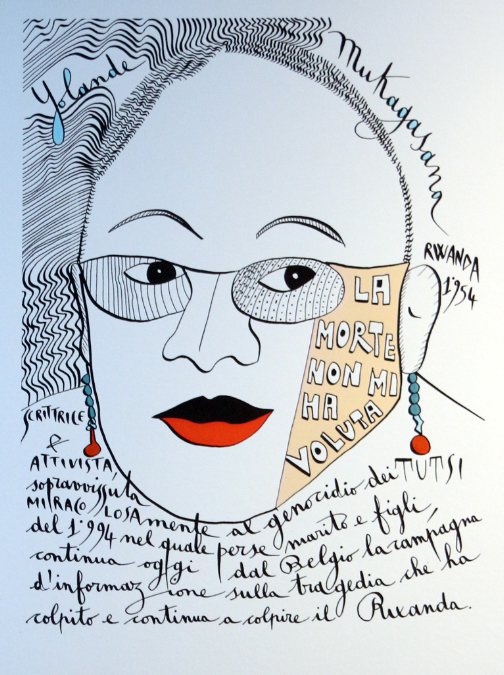 Yolande
Mukagasana
RWANDA
1.954
LA
MORTE
NON MI
HA
VOLUTA
SCRITTRICE
&
ATTIVISTA,
sopravvissuta
MIRACOLOSAmente al genocidio dei TUTSI
del 1.994 nel quale perse marito e figli,
continua oggi dal Belgio la campagna
d'informazione sulla tragedia che ha
colpito e continua a colpire il Rwanda.